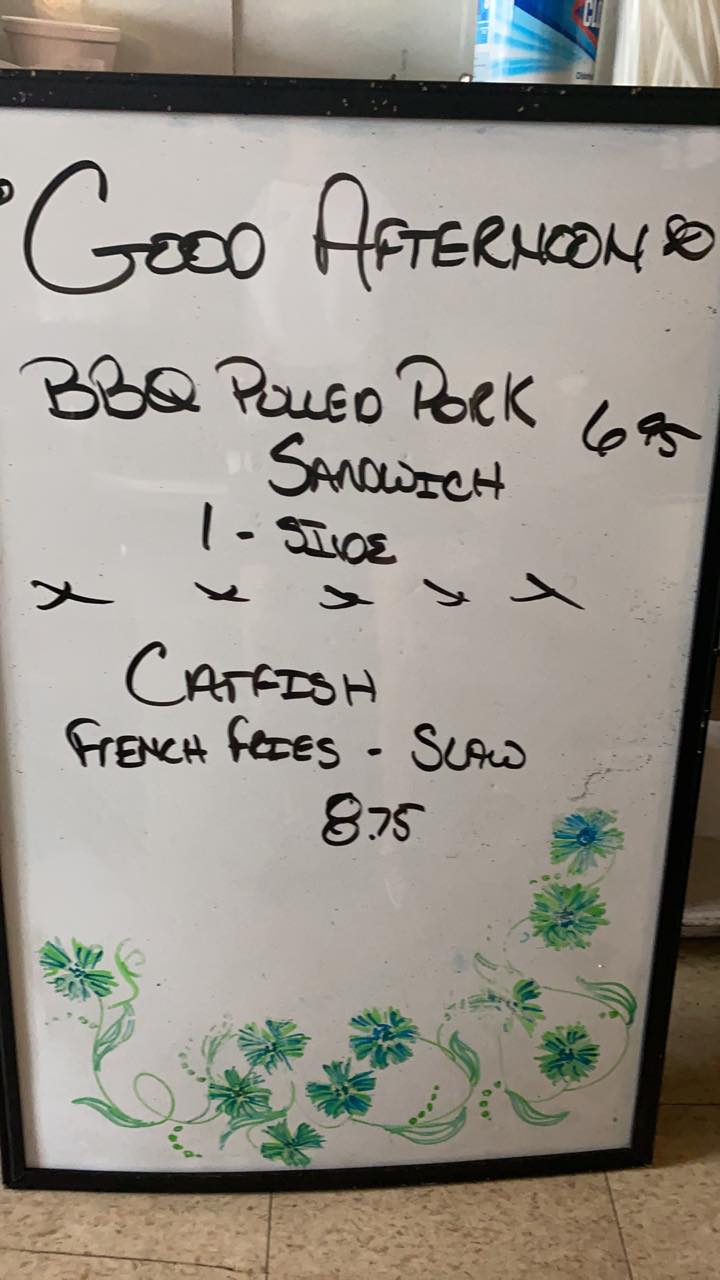 GOOD AFTERNOON
BBQ PULLED PORK 6 95
SANDWICH
1 - SIDE
CATFISH
FRENCH FRIES - SLAW
8.75
CL